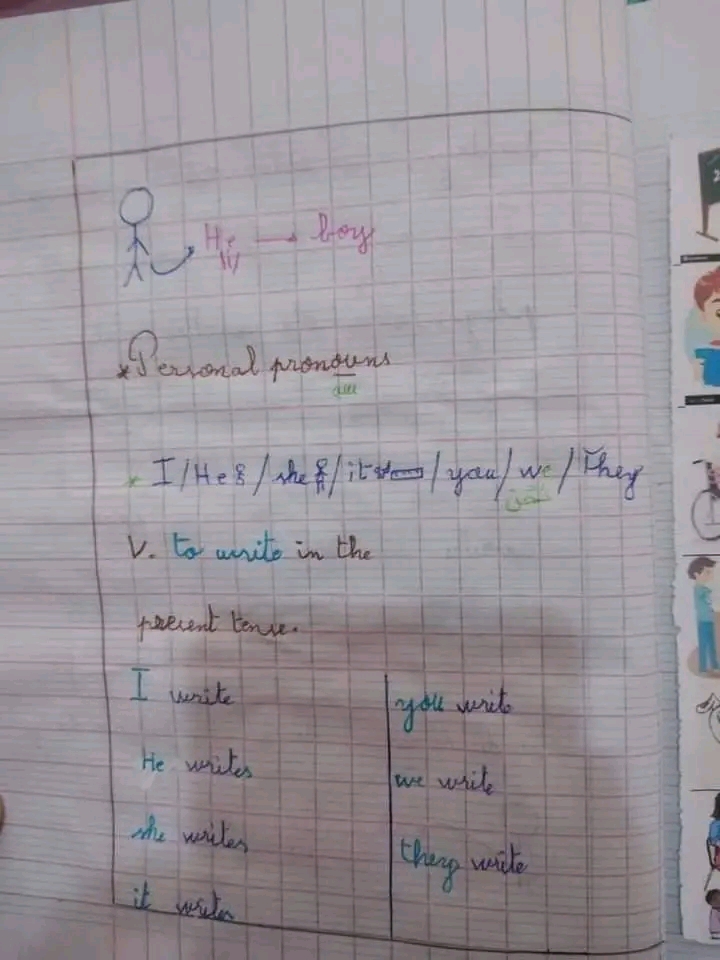 He → boy
*Personal pronouns
* I / He / she / it / you / we / They
نحن
V. to write in the
present tense.
I write
He writes
she writes
it writes
you write
we write
they write